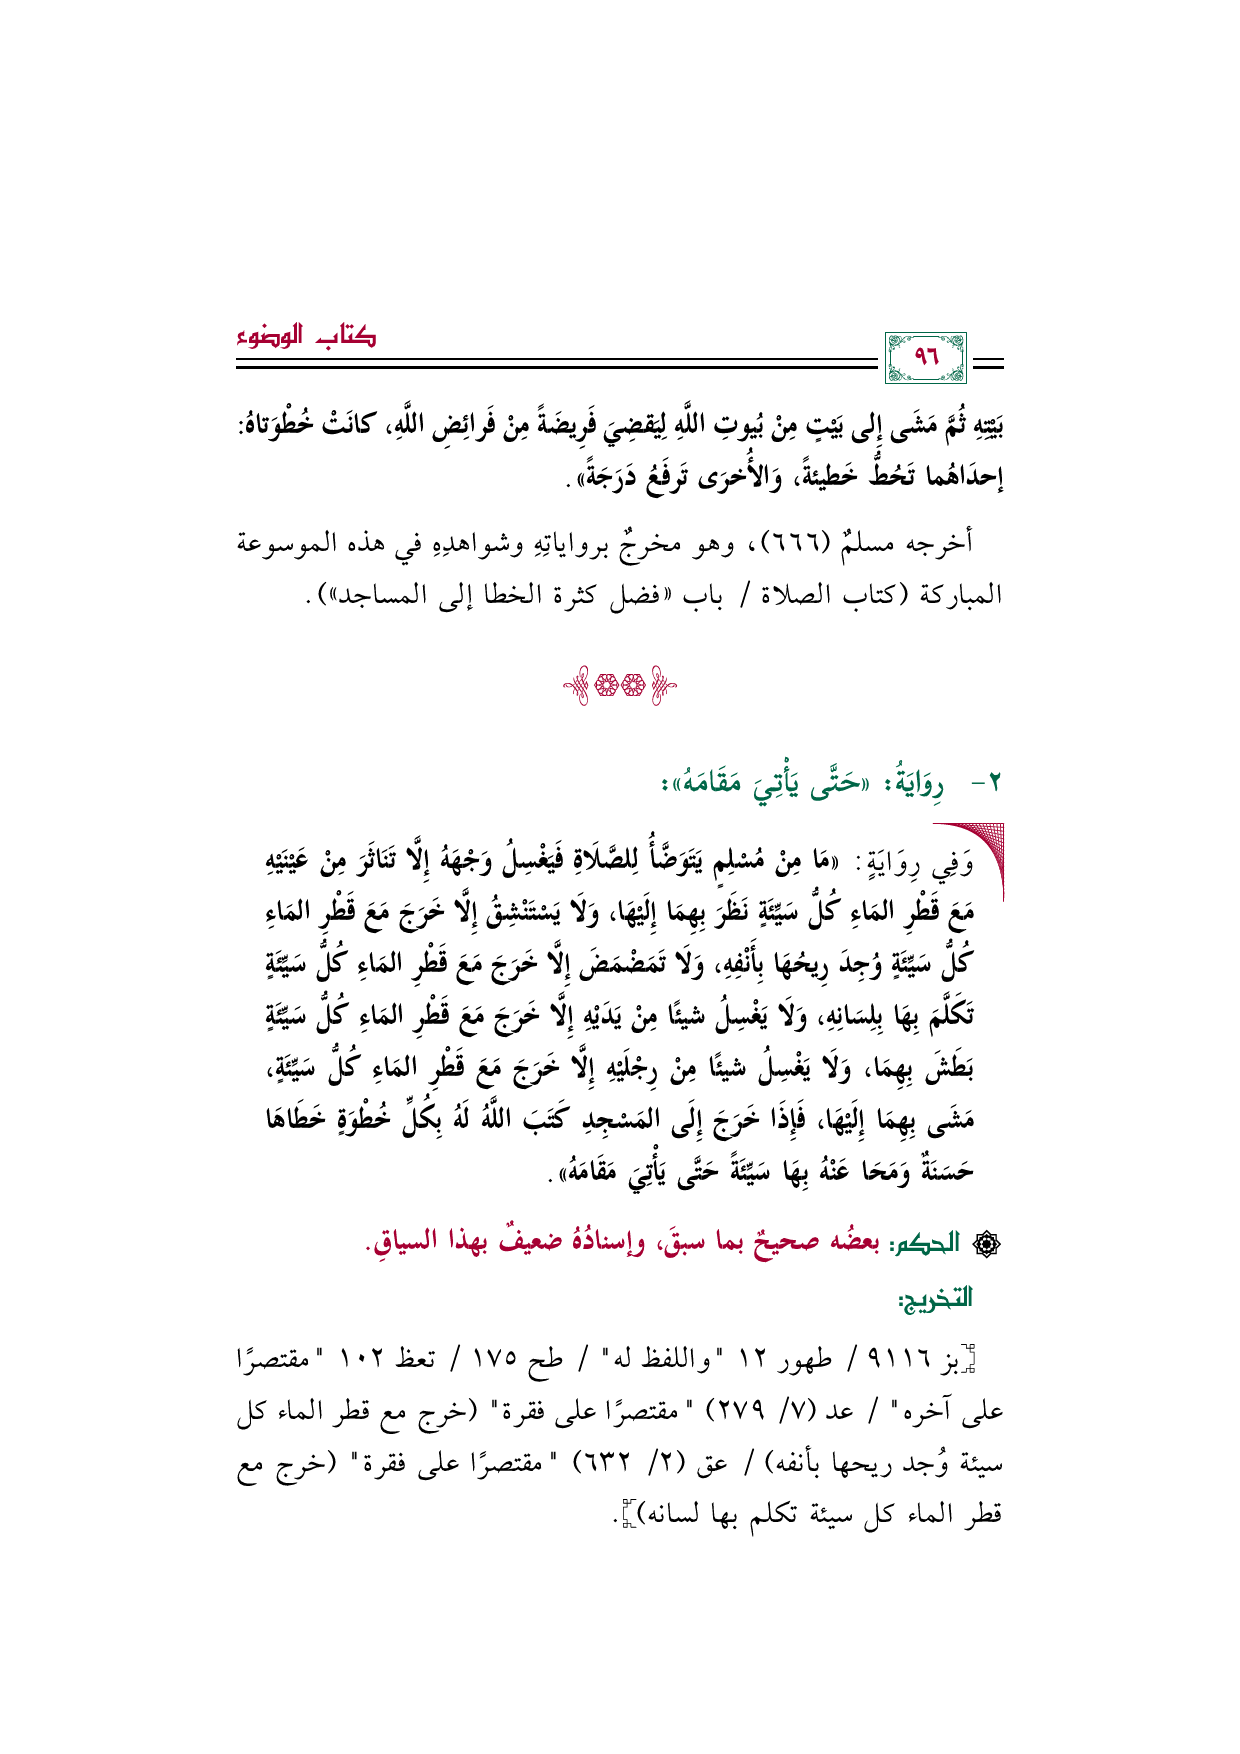 كتاب الوضوء
٩٦
بَيْتِهِ ثُمَّ مَشَى إِلى بَيْتٍ مِنْ بُيوتِ اللَّهِ لِيَقضِيَ فَرِيضَةً مِنْ فَرائِضِ اللَّهِ، كانَتْ خُطْوَتاهُ:
إحدَاهُما تَحُطُّ خَطيئةً، وَالأُخرَى تَرفَعُ دَرَجَةً».
أخرجه مسلمٌ (٦٦٦)، وهو مخرجٌ برواياتِهِ وشواهدِهِ في هذه الموسوعة
المباركة (كتاب الصلاة / باب «فضل كثرة الخطا إلى المساجد»).
٢- رِوَايَةُ: «حَتَّى يَأْتِيَ مَقَامَهُ»:
وَفِي رِوَايَةٍ: «مَا مِنْ مُسْلِمٍ يَتَوَضَّأُ لِلصَّلَاةِ فَيَغْسِلُ وَجْهَهُ إِلَّا تَنَاثَرَ مِنْ عَيْنَيْهِ
مَعَ قَطْرِ المَاءِ كُلُّ سَيِّئَةٍ نَظَرَ بِهِمَا إِلَيْهَا، وَلَا يَسْتَنْشِقُ إِلَّا خَرَجَ مَعَ قَطْرِ المَاءِ
كُلُّ سَيِّئَةٍ وُجِدَ رِيحُهَا بِأَنْفِهِ، وَلَا تَمَضْمَضَ إِلَّا خَرَجَ مَعَ قَطْرِ المَاءِ كُلُّ سَيِّئَةٍ
تَكَلَّمَ بِهَا بِلِسَانِهِ، وَلَا يَغْسِلُ شيئًا مِنْ يَدَيْهِ إِلَّا خَرَجَ مَعَ قَطْرِ المَاءِ كُلُّ سَيِّئَةٍ
بَطَشَ بِهِمَا، وَلَا يَغْسِلُ شيئًا مِنْ رِجْلَيْهِ إِلَّا خَرَجَ مَعَ قَطْرِ المَاءِ كُلُّ سَيِّئَةٍ،
مَشَى بِهِمَا إِلَيْهَا، فَإِذَا خَرَجَ إِلَى المَسْجِدِ كَتَبَ اللَّهُ لَهُ بِكُلِّ خُطْوَةٍ خَطَاهَا
حَسَنَةٌ وَمَحَا عَنْهُ بِهَا سَيِّئَةً حَتَّى يَأْتِيَ مَقَامَهُ».
الحكم: بعضُه صحيحٌ بما سبقَ، وإسنادُهُ ضعيفٌ بهذا السياقِ.
التخريج:
[بز ٩١١٦ / طهور ١٢ "واللفظ له" / طح ١٧٥ / تعظ ١٠٢ "مقتصرًا
على آخره" / عد (٧/ ٢٧٩) "مقتصرًا على فقرة" (خرج مع قطر الماء كل
سيئة وُجد ريحها بأنفه) / عق (٢/ ٦٣٢) "مقتصرًا على فقرة" (خرج مع
قطر الماء كل سيئة تكلم بها لسانه)].